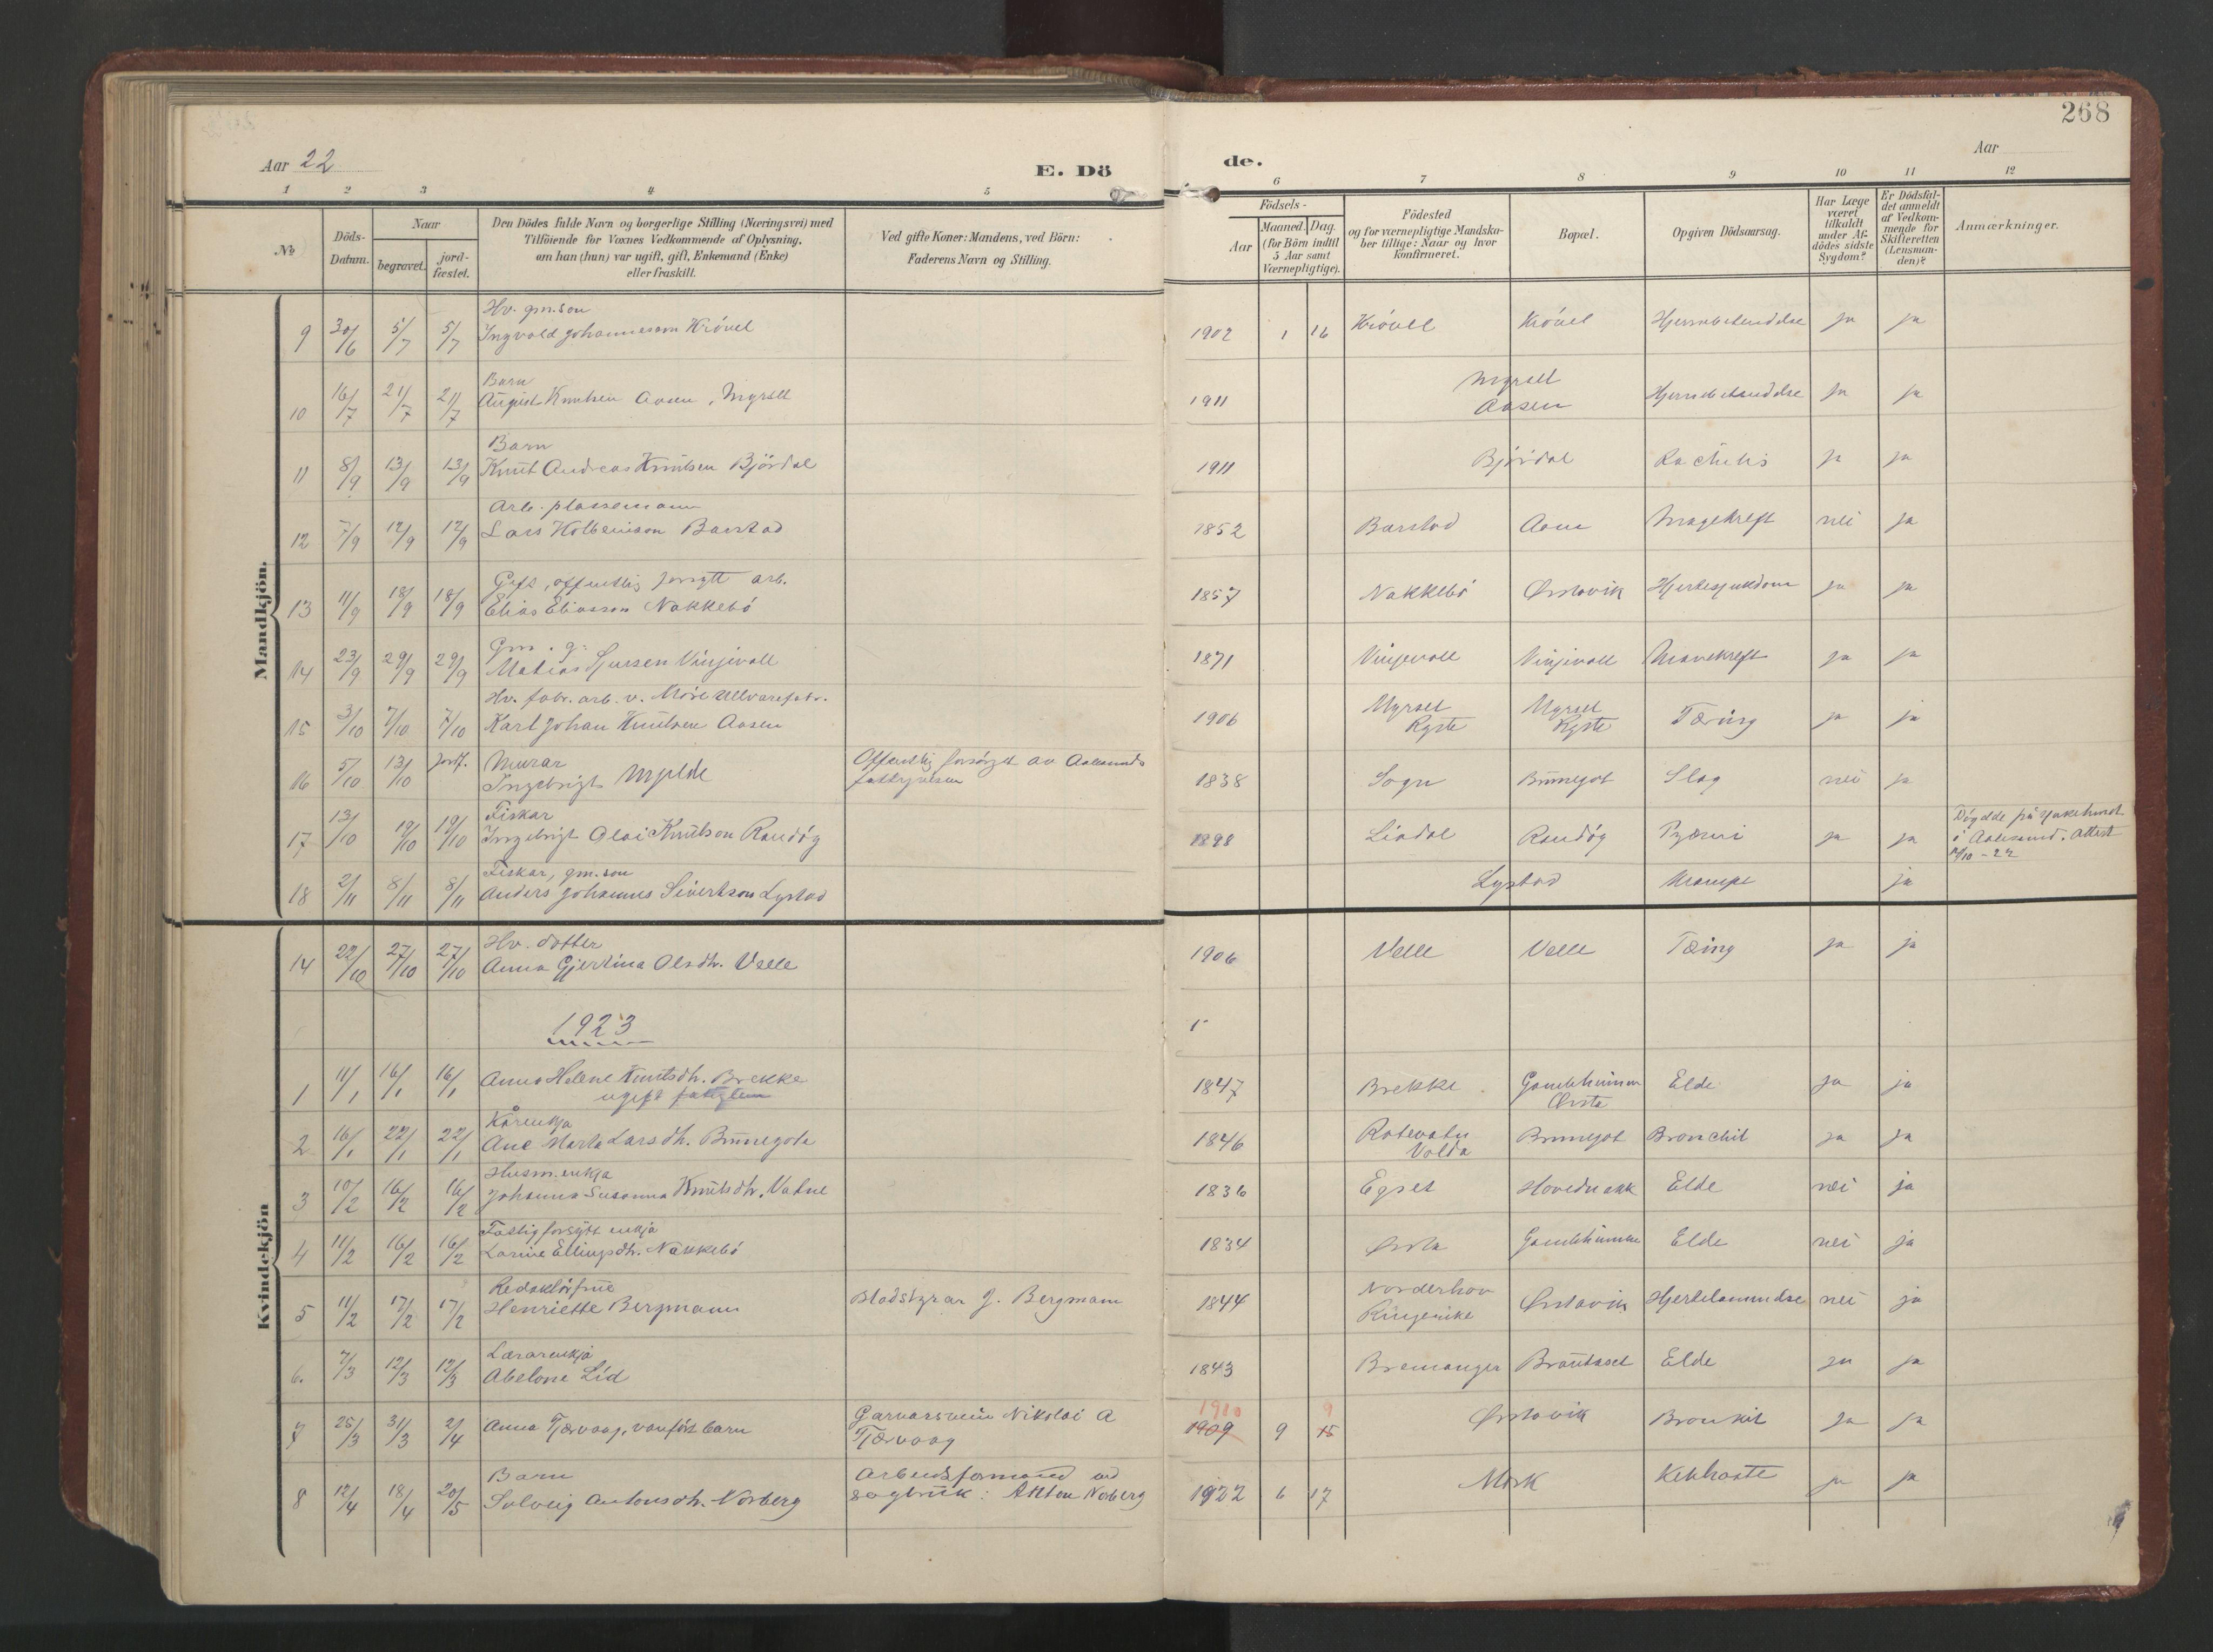 268
Aar 22
E. Dö
de.
Aar
1 2 3 4 5 6 7 8 9 10 11 12
No
Döds-Datum.
Naar
begravet.
jord-fæstet.
Den Dödes fulde Navn og borgerlige Stilling (Næringsvei) med
Tilföiende for Voxnes Vedkommende af Oplysning,
om han (hun) var ugift, gift, Enkemand (Enke)
eller fraskilt.
Ved gifte Koner: Mandens, ved Börn:
Faderens Navn og Stilling.
Födsels-
Aar
Maaned. Dag.
(for Börn indtil
5 Aar samt
Værnepligtige).
Födested
og for værnepligtige Mandska-
ber tillige: Naar og hvor
konfirmeret.
Bopæl.
Opgiven Dödsaarsag.
Har Læge
været
tilkaldt
under Af-
dödes sidste
Sygdom?
Er Dödsfal-
det anmeldt
af Vedkom-
mende for
Skifteretten
(Lensman-
den)?
Anmærkninger.
Mandkjön.
Hv. gm.son
9 30/6 5/7 5/7 Ingvald Johannesson Krövel 1902 1 16 Krövel Krövel ja ja
Barn
10 16/7 21/7 21/7 Knutsen Aasen, Myrset 1911 Myrset ja ja
Aasen
Barn
11 8/9 13/9 13/9 Knut Andreas Knutsen Björdal 1911 Björdal Rachitis ja ja
Arb. plassemann
12 7/9 12/9 12/9 Lars Barstad 1852 Barstad Aam Magekreft nei ja
Gift, offentlig forsytt arb.
13 11/9 18/9 18/9 Elias Eliasson Nakkebö 1857 Nakkebö Ørstavik Hjertesjukdom ja ja
Gm. g.
14 23/9 29/9 29/9 Matias Sjursen Vinjevoll 1871 Vinjevoll Vinjevoll Mavekreft ja ja
Hv. fabr. arb. v. Möre Ullvarefabr.
15 3/10 7/10 7/10 Karl Johan Knutsen Aasen 1906 Myrset Ryste Myrset Ryste Tæring ja ja
16 5/10 13/10 jordf. Murar Offentlig forsörget av Aalesunds
Ingebrigt Myelde 1838 Sogn Slag nei ja
Fiskar
17 13/10 19/10 19/10 Ingebrigt Olai Knutson Raudöy 1898 Liadal Raudöy Pyæmi ja ja Döydde på sjukehuset
i Aalesund. Attest
Fiskar, gm.son
18 2/11 8/11 8/11 Anders Johannes Sivertson Lystad Lystad Krampe ja
Kvindekjön
Hv. dotter
14 22/10 27/10 27/10 Anna Gjertina Olsdtr. Velle 1906 Velle Velle Tæring ja ja
1923
1 11/1 16/1 16/1 Anna Helene Knutsdtr. Brekke 1847 Brekke Gamleheimen Elde ja ja
ugift Ørsta
Kårenkja
2 16/1 22/1 22/1 Ane Marta Larsdtr. 1846 Rotevatn Bronchit ja ja
Volda
Husm.enkja
3 10/2 16/2 16/2 Johanna Susanna Knutsdtr. Vatne 1836 Egset Hovednakk Elde nei ja
Fattigforsytt enkja
4 11/2 16/2 16/2 Larine Ellingsdtr. Nakkebö 1834 Ørsta Gamleheimen Elde nei ja
Redaktörfrue
5 11/2 17/2 17/2 Henriette Bergmann Bladstyrar J. Bergmann 1844 Norderhov Ørstavik Hjertelammelse nei ja
Ringerike
Lærarenkja
6. 7/3 12/3 12/3 Abelone Lid 1843 Bremanger Brautaset Elde ja ja
7 25/3 31/3 2/4 Anna Tjervaag, vanfört barn Garvarsvein Nikolai A 1910 9
Tjervaag 1909 9 15 Ørstavik Bronkit ja ja
Barn Arbeidsformand ved
8 12/4 18/4 20/5 Solveig Antonsdtr. Norberg sagbruk: Anton Norberg 1922 6 17 Mork Kikhoste ja ja